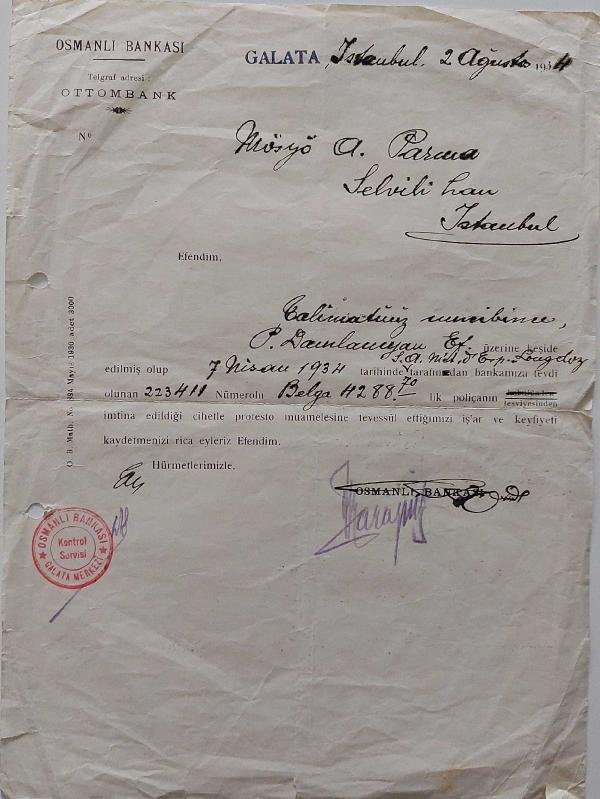 OSMANLI BANKASI
Telgraf adresi :
OTTOMBANK
No
GALATA, İstanbul. 2 Ağustos 1934
Mösyö A. Parma
Selvili han
İstanbul
Efendim,
Talimatınız mucibince,
P. Damlamyan Ef. üzerine keşide
S.A. Mét. d'Esp. Longdoz
edilmiş olup 7 Nisan 1934 tarihinde tarafından bankamıza tevdi
olunan 223411 Numerolu Belga 4288.70 lık poliçanın kabulünden
tesviyesinden
imtina edildiği cihetle protesto muamelesine tevessül ettiğimizi iş'ar ve keyfiyeti
kaydetmenizi rica eyleriz Efendim.
Hürmetlerimizle,
OSMANLI BANKASI
OSMANLI BANKASI
Kontrol
Servisi
GALATA MERKEZİ
O. B. Matb. No 184 Mayıs 1930 adet 3000